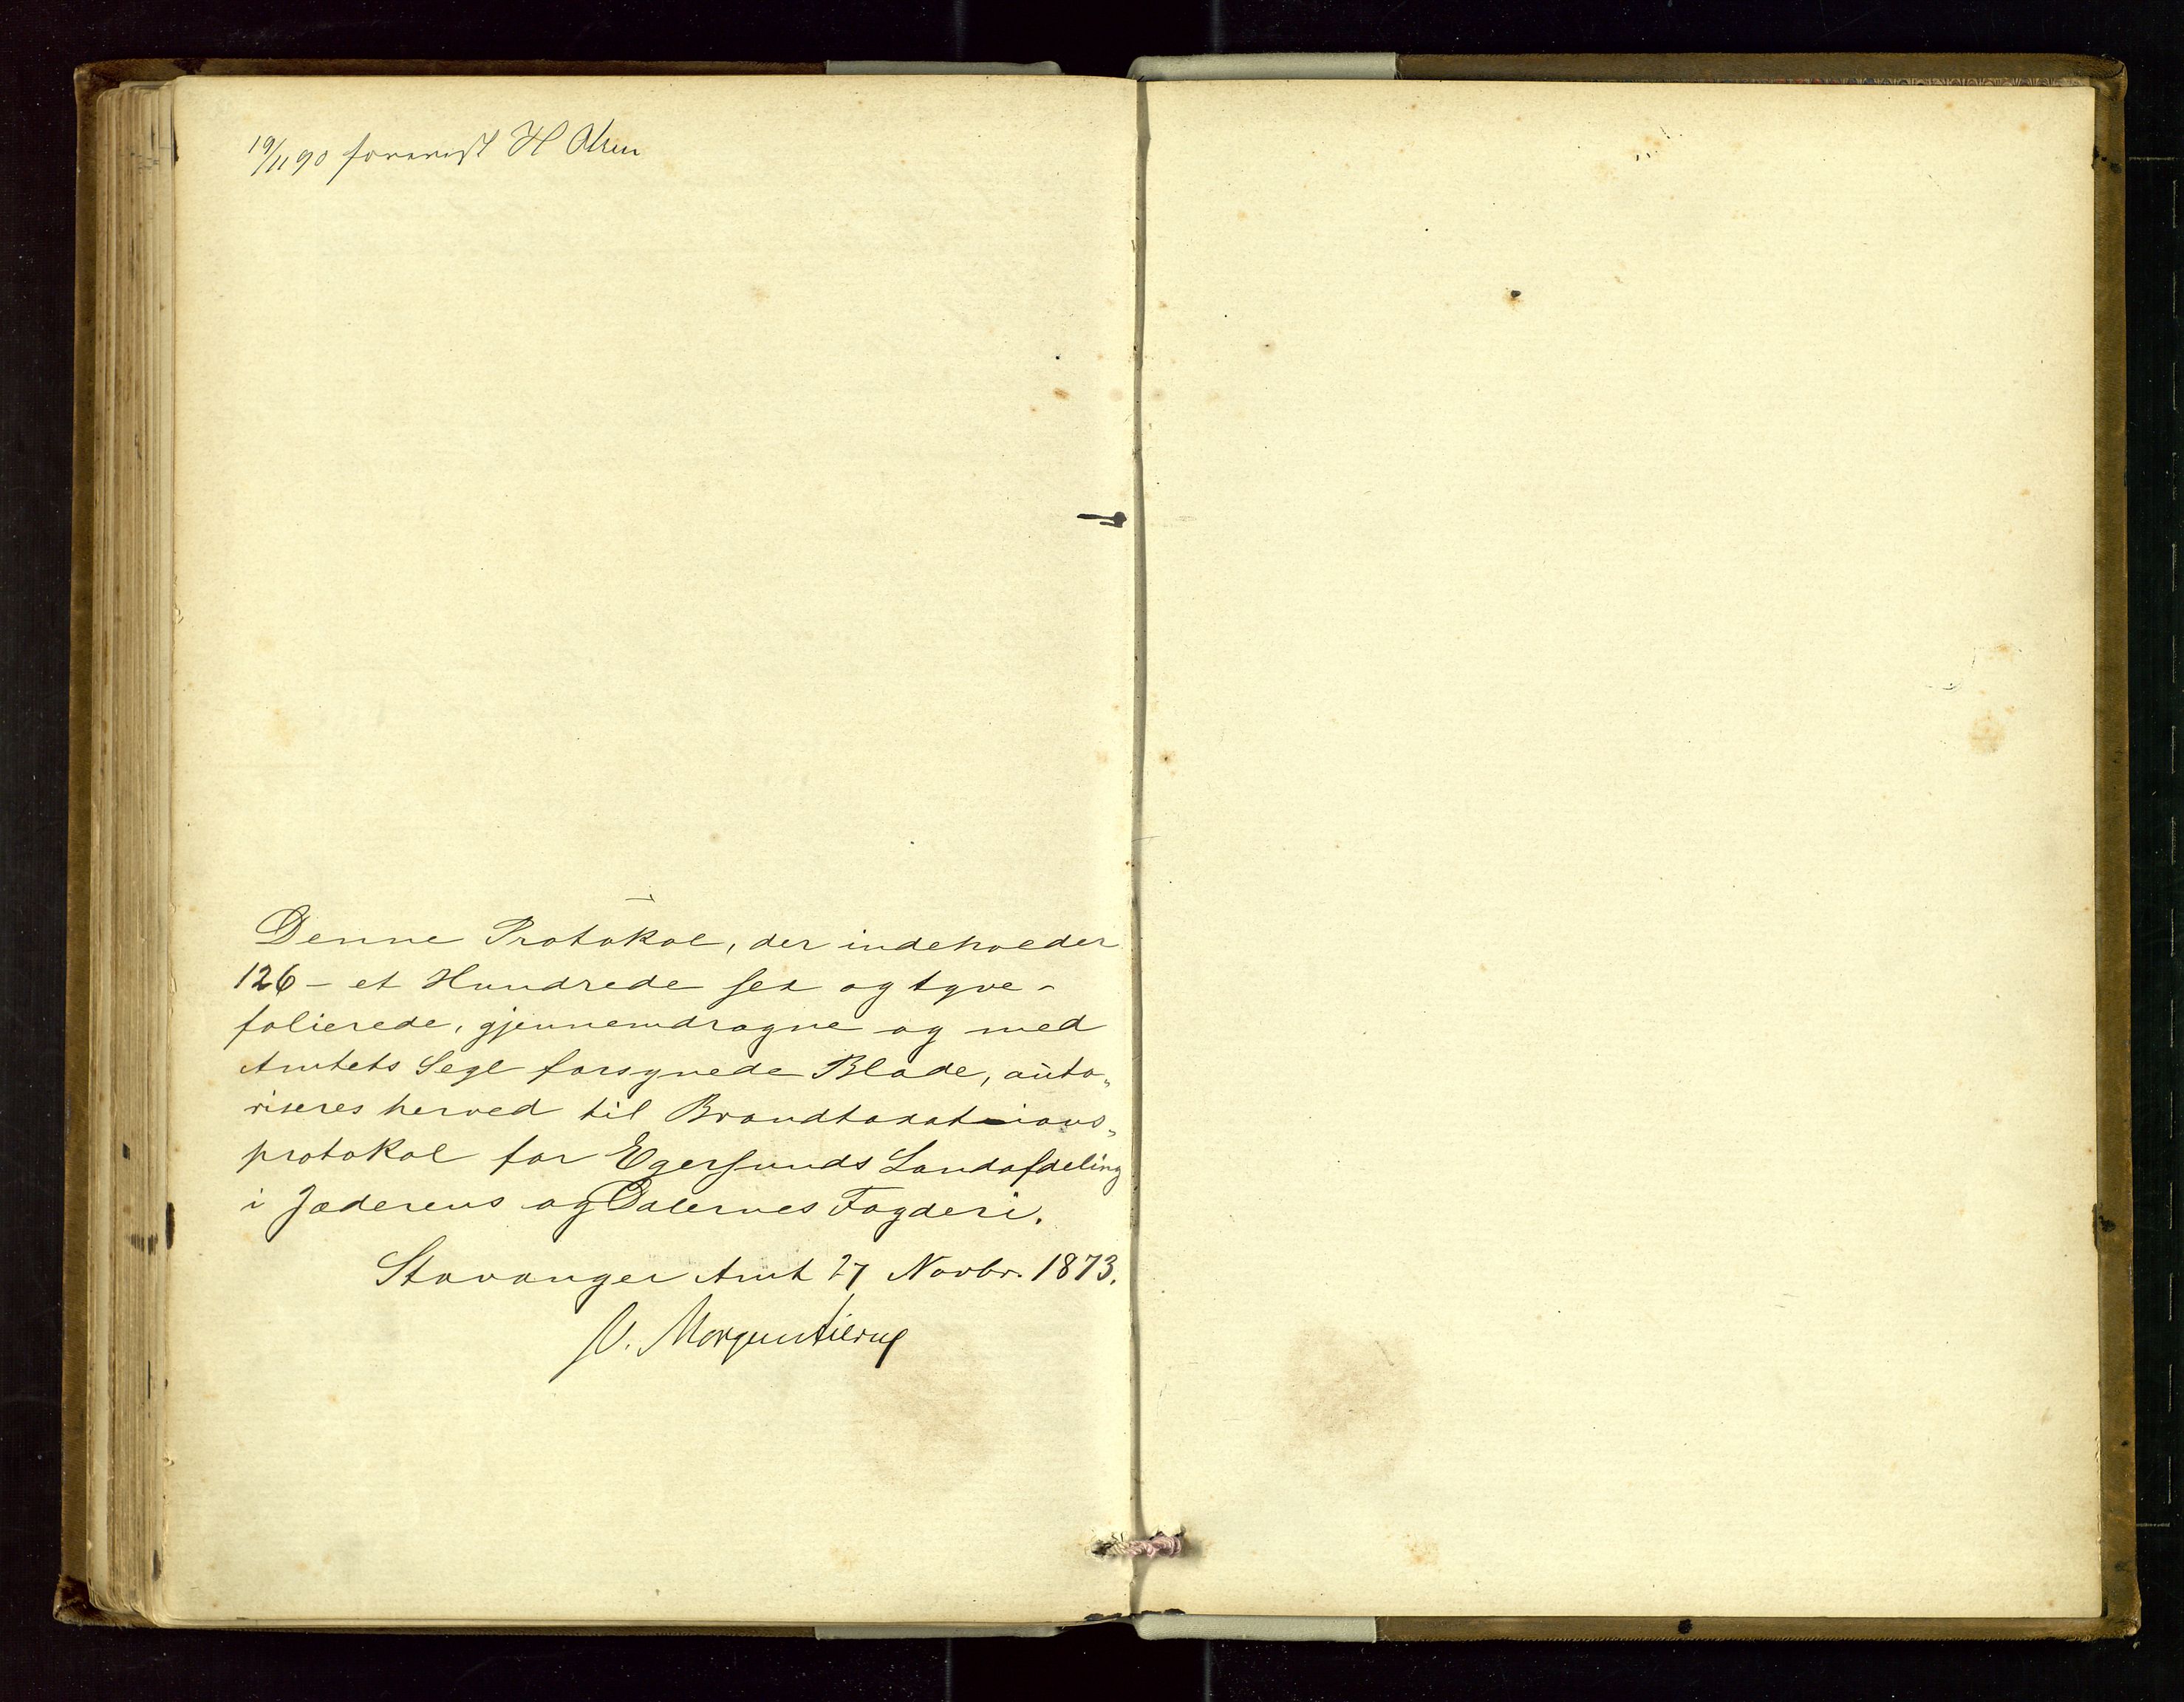 19/11 90 forevist H Olsen
Denne Protokol, der indeholder
126 - et Hundrede sex og tyve -
folierede, gjennemdragne og med
Amtets Segl forsynede Blade, auto„
riseres herved til Brandtaxations„
protokol for Egersunds Landafdeling
i Jæderens og Dalernes Fogderi.
Stavanger Amt 27 Novbr. 1873.
V. Morgenstierne